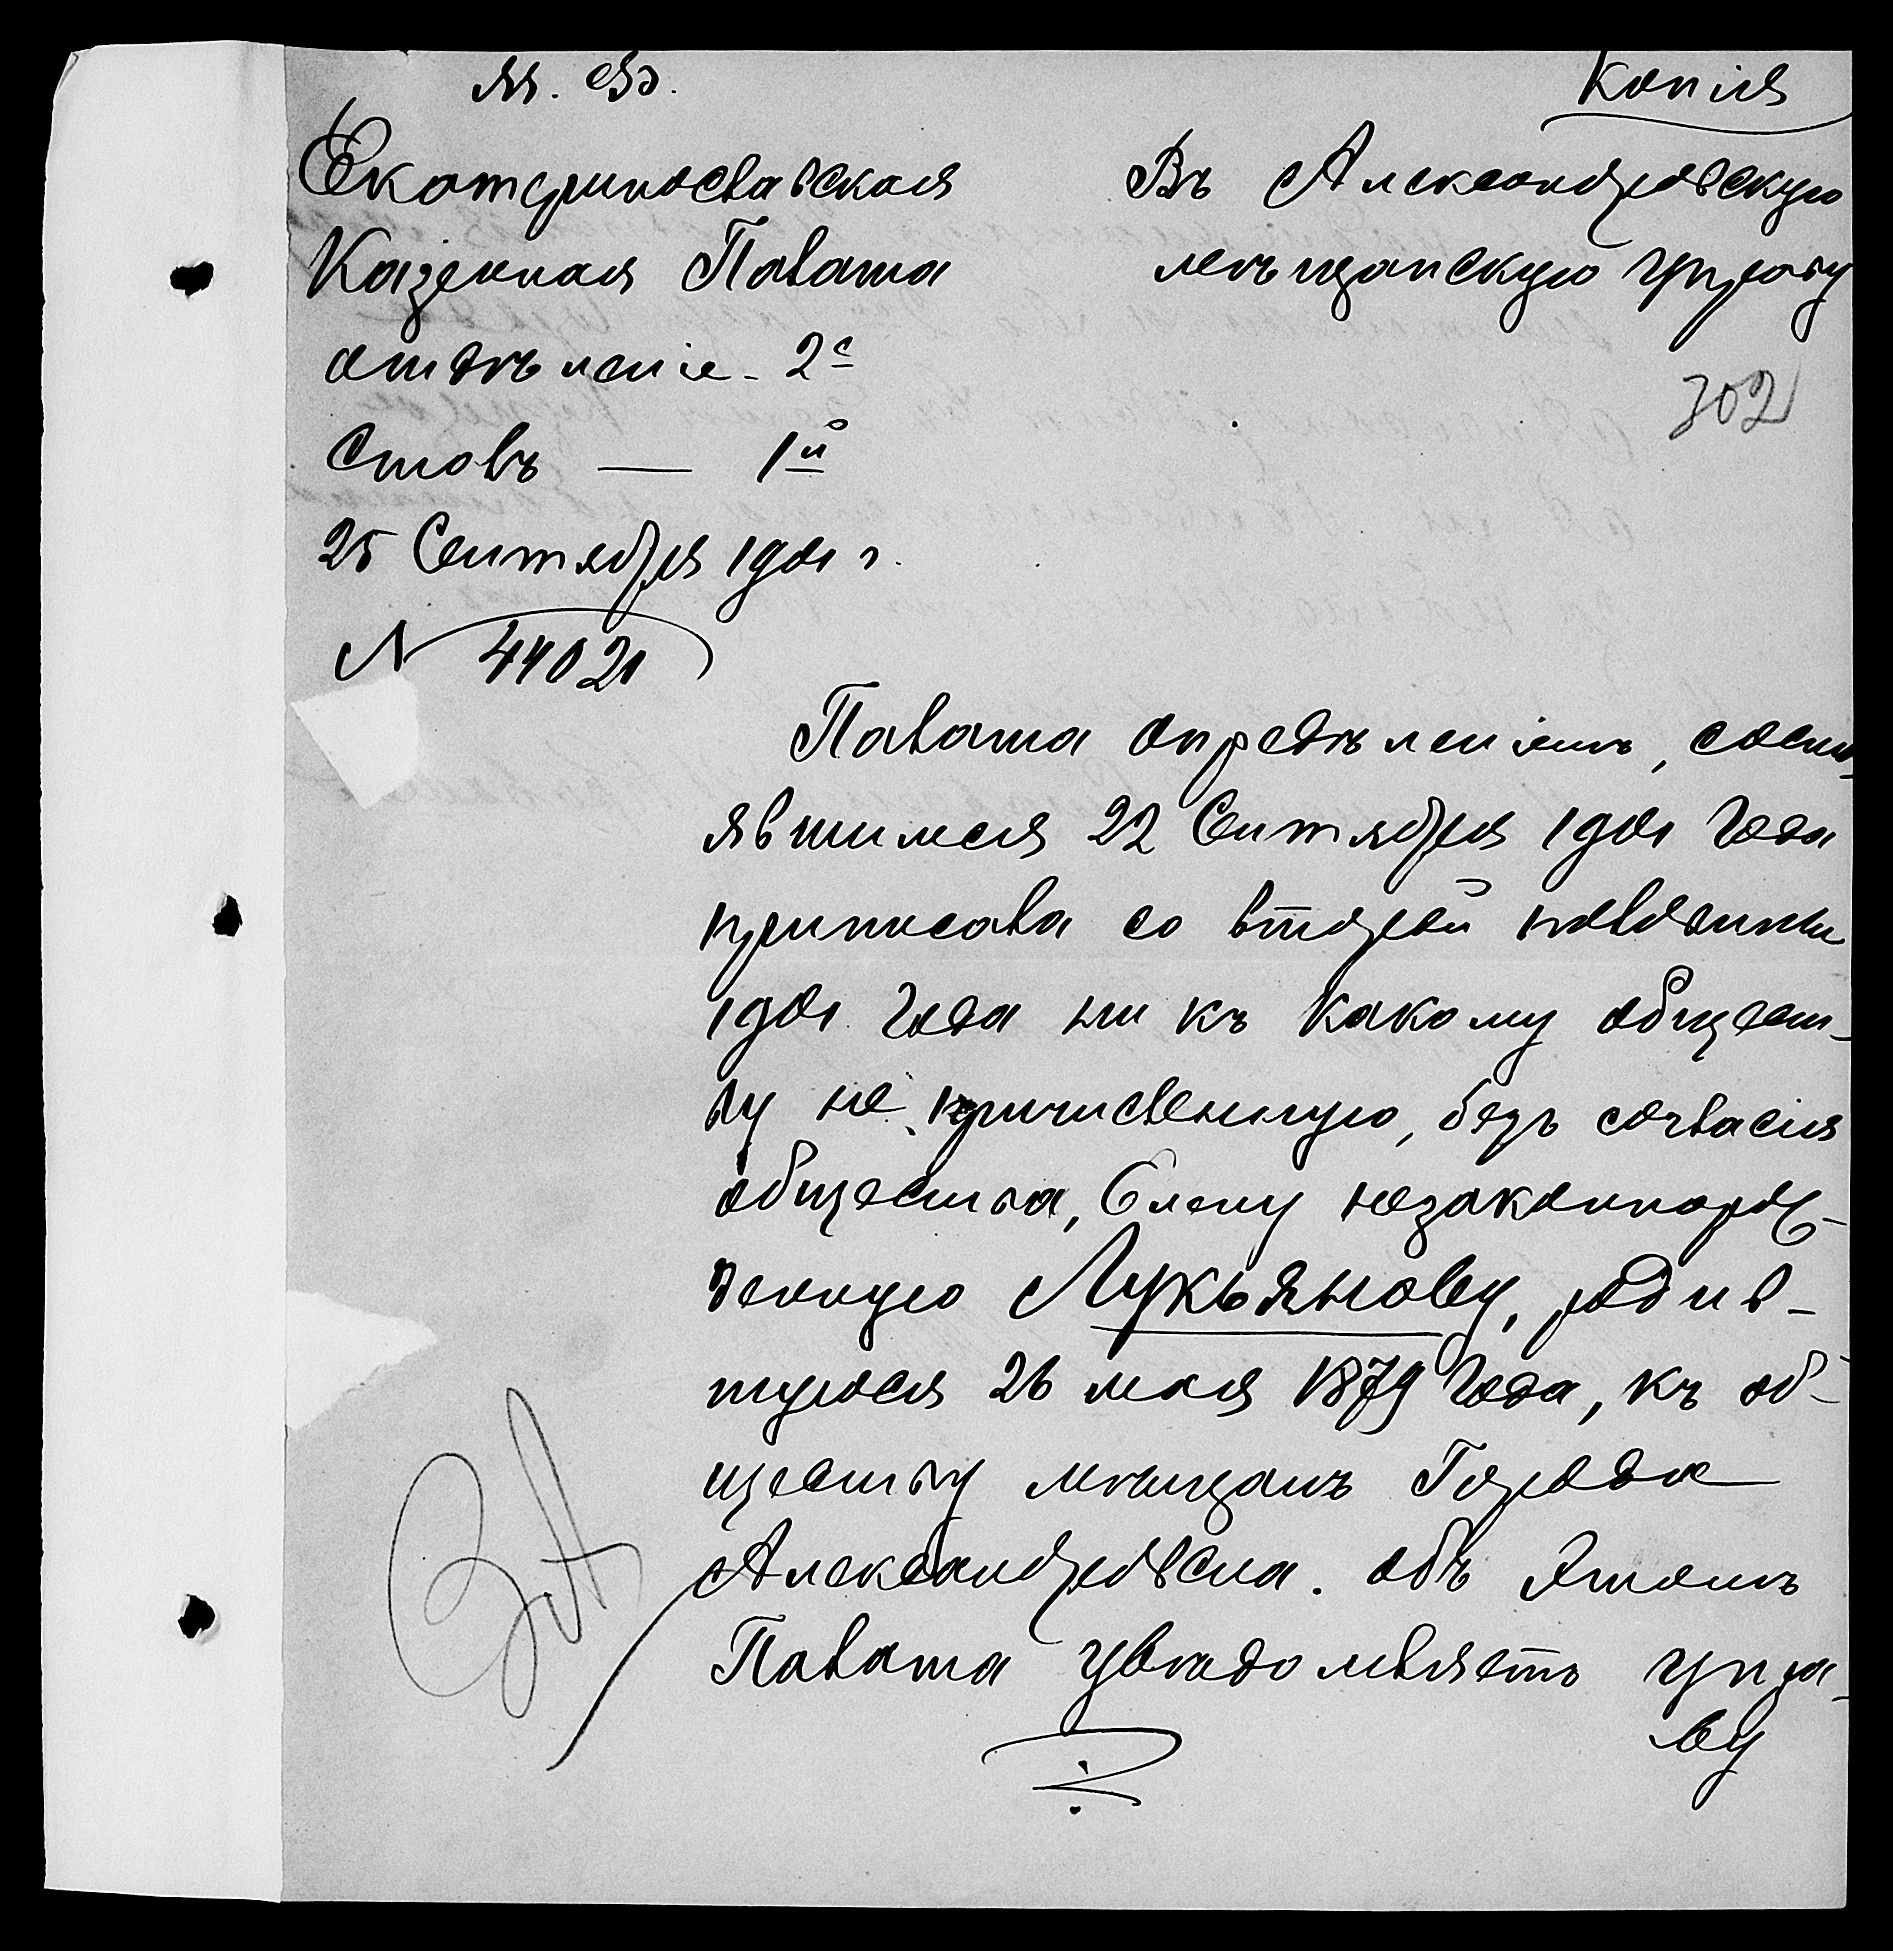 М. Ф. Копія
Екатеринославская
Казенная Палата
отдѣленіе - 2е
Столъ — 1й
25 Сентября 1901 г.
N 44021
Въ Александровскую
мѣщанскую управу
302
Палата опредѣленіемъ, состо-
явшимся 22 Сентября 1901 года
приписала со второй половины
1901 года ни къ какому общест-
ву не причисленную, безъ согласія
общества, Елену незаконнорож-
денную Лукьянову, родив-
шуюся 26 мая 1879 года, къ об-
ществу мѣщанъ Города
Александровска. Объ этомъ
Палата увѣдомляетъ упра-
ву